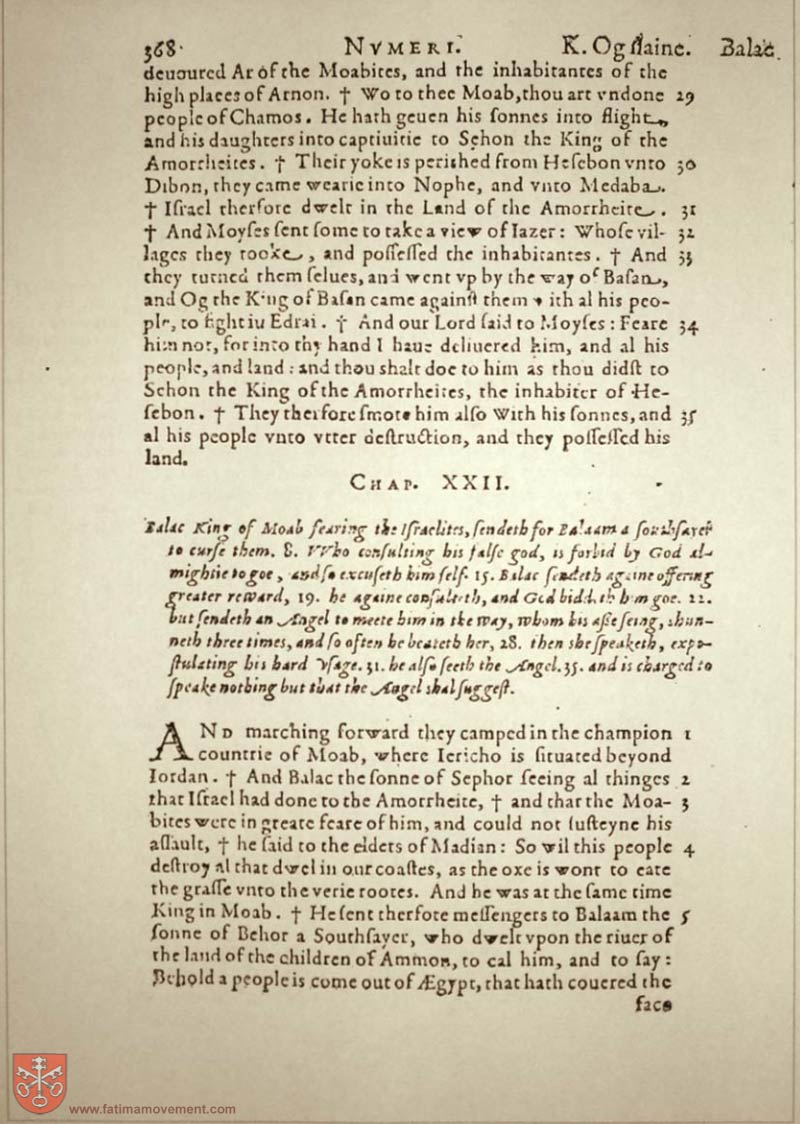 368· NVMERI. K. Og ſlaine. Balac.
deuoured Ar of the Moabites, and the inhabitantes of the
high places of Arnon. † Wo to thee Moab, thou art vndone 29
people of Chamos. He hath geuen his ſonnes into flight,
and his daughters into captiuitie to Sehon the King of the
Amorrheites. † Their yoke is periſhed from Heſebon vnto 30
Dibon, they came wearie into Nophe, and vnto Medaba.
† Iſrael therfore dwelt in the Land of the Amorrheite. 31
† And Moyſes ſent ſome to take a view of Iazer: Whoſe vil- 32
lages they tooke, and poſſeſſed the inhabitantes. † And 33
they turned them ſelues, and went vp by the way of Baſan,
and Og the King of Baſan came againſt them with al his peo-
ple, to fight iu Edrai. † And our Lord ſaid to Moyſes: Feare 34
him not, for into thy hand I haue deliuered him, and al his
people, and land: and thou shalt doe to him as thou didſt to
Sehon the King of the Amorrheites, the inhabiter of He-
ſebon. † They therfore ſmote him alſo With his ſonnes, and 35
al his people vnto vtter deſtruction, and they poſſeſſed his
land.
CHAP. XXII.
Balac King of Moab fearing the Iſraelites, ſendeth for Balaam a ſouthſayer
to curſe them. 8. VVho conſulting his falſe god, is forbid by God al-
mightie to goe, and ſo excuſeth him ſelf. 15. Balac ſendeth againe offering
greater reward, 19. he againe conſulteth, and God biddeth him goe. 22.
but ſendeth an Angel to meete him in the way, whom his aſſe ſeing, shun-
neth three times, and ſo often he beateth her, 28. then she ſpeaketh, expo-
ſtulating his hard vſage. 31. he alſo ſeeth the Angel. 35. and is charged to
ſpeake nothing but that the Angel shal ſuggeſt.
AND marching forward they camped in the champion 1
countrie of Moab, where Iericho is ſituated beyond
Iordan. † And Balac the ſonne of Sephor ſeeing al thinges 2
that Iſrael had done to the Amorrheite, † and that the Moa- 3
bites were in greate feare of him, and could not ſuſteyne his
aſſault, † he ſaid to the elders of Madian: So wil this people 4
deſtroy al that dwel in our coaſtes, as the oxe is wont to eate
the graſſe vnto the verie rootes. And he was at the ſame time
King in Moab. † He ſent therfore meſſengers to Balaam the 5
ſonne of Behor a Southſayer, who dwelt vpon the riuer of
the land of the children of Ammon, to cal him, and to ſay:
Behold a people is come out of Ægypt, that hath couered the
face
www.fatimamovement.com